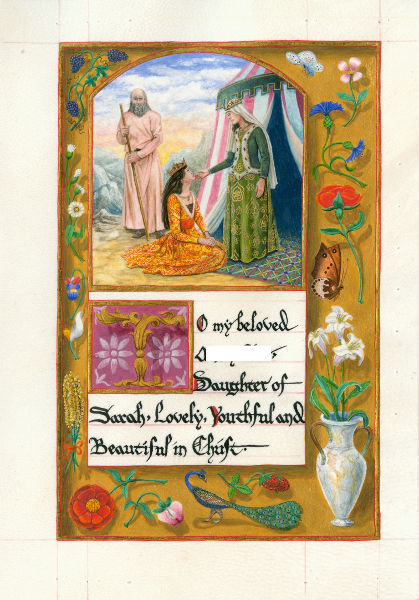 To my beloved
Daughter of
Sarah, Lovely, Youthful and
Beautiful in Christ.